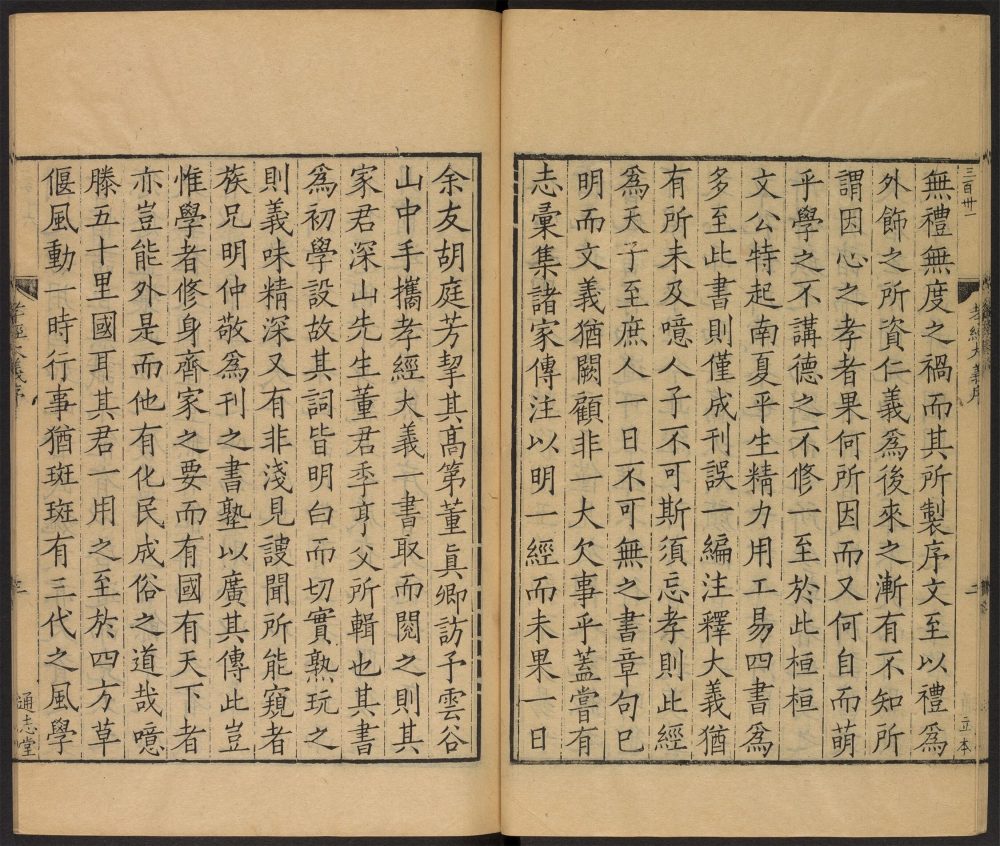 三百卅一
孝經大義序
二
無禮無度之禍而其所製序文至以禮爲
外飾之所資仁義爲後來之漸有不知所
謂因心之孝者果何所因而又何自而萌
乎學之不講德之不修一至於此桓桓
文公特起南夏平生精力用工易四書爲
多至此書則僅成刊誤一編注釋大義猶
有所未及噫人子不可斯須忘孝則此經
爲天子至庶人一日不可無之書章句已
明而文義猶闕顧非一大欠事乎蓋嘗有
志彙集諸家傳注以明一經而未果一日
余友胡庭芳挈其高第董眞卿訪予雲谷
山中手攜孝經大義一書取而閱之則其
家君深山先生董君季亨父所輯也其書
爲初學設故其詞皆明白而切實熟玩之
則義味精深又有非淺見謏聞所能窺者
族兄明仲敬爲刊之書塾以廣其傳此豈
惟學者修身齊家之要而有國有天下者
亦豈能外是而他有化民成俗之道哉噫
滕五十里國耳其君一用之至於四方草
偃風動一時行事猶斑斑有三代之風學
孝經大義序
通志堂